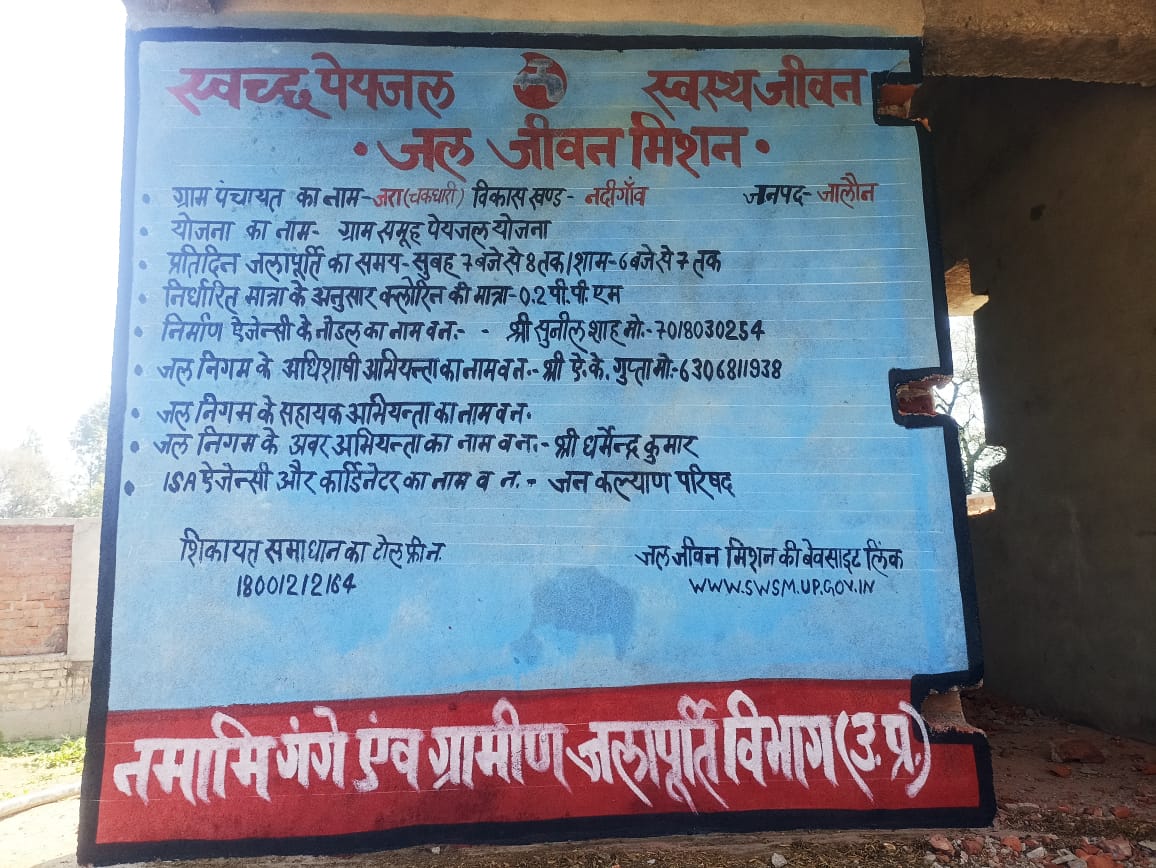 स्वच्छ पेयजल स्वस्थ जीवन
• जल जीवन मिशन •
• ग्राम पंचायत का नाम-जरा (चकधारी) विकास खण्ड- नदीगाँव जनपद- जालौन
• योजना का नाम- ग्राम समूह पेयजल योजना
• प्रतिदिन जलापूर्ति का समय- सुबह 7 बजे से 8 तक / शाम-6 बजे से 7 तक
• निर्धारित मात्रा के अनुसार क्लोरिन की मात्रा-0.2 पी.पी.एम
• निर्माण ऐजेन्सी के नोडल का नाम व न.- - श्री सुनील शाह मो.-7018030254
• जल निगम के अधिशाषी अभियन्ता का नाम व न.- श्री ऐ.के. गुप्ता मो.-6306811938
• जल निगम के सहायक अभियन्ता का नाम व न.
• जल निगम के अवर अभियन्ता का नाम व न.- श्री धर्मेन्द्र कुमार
• ISA ऐजेन्सी और कार्डिनेटर का नाम व न.- जन कल्याण परिषद
शिकायत समाधान का टोल फ्री न. जल जीवन मिशन की बेवसाइट लिंक
18001212164 WWW.SWSM.UP.GOV.IN
नमामि गंगे एंव ग्रामीण जलापूर्ति विभाग (उ.प्र.)